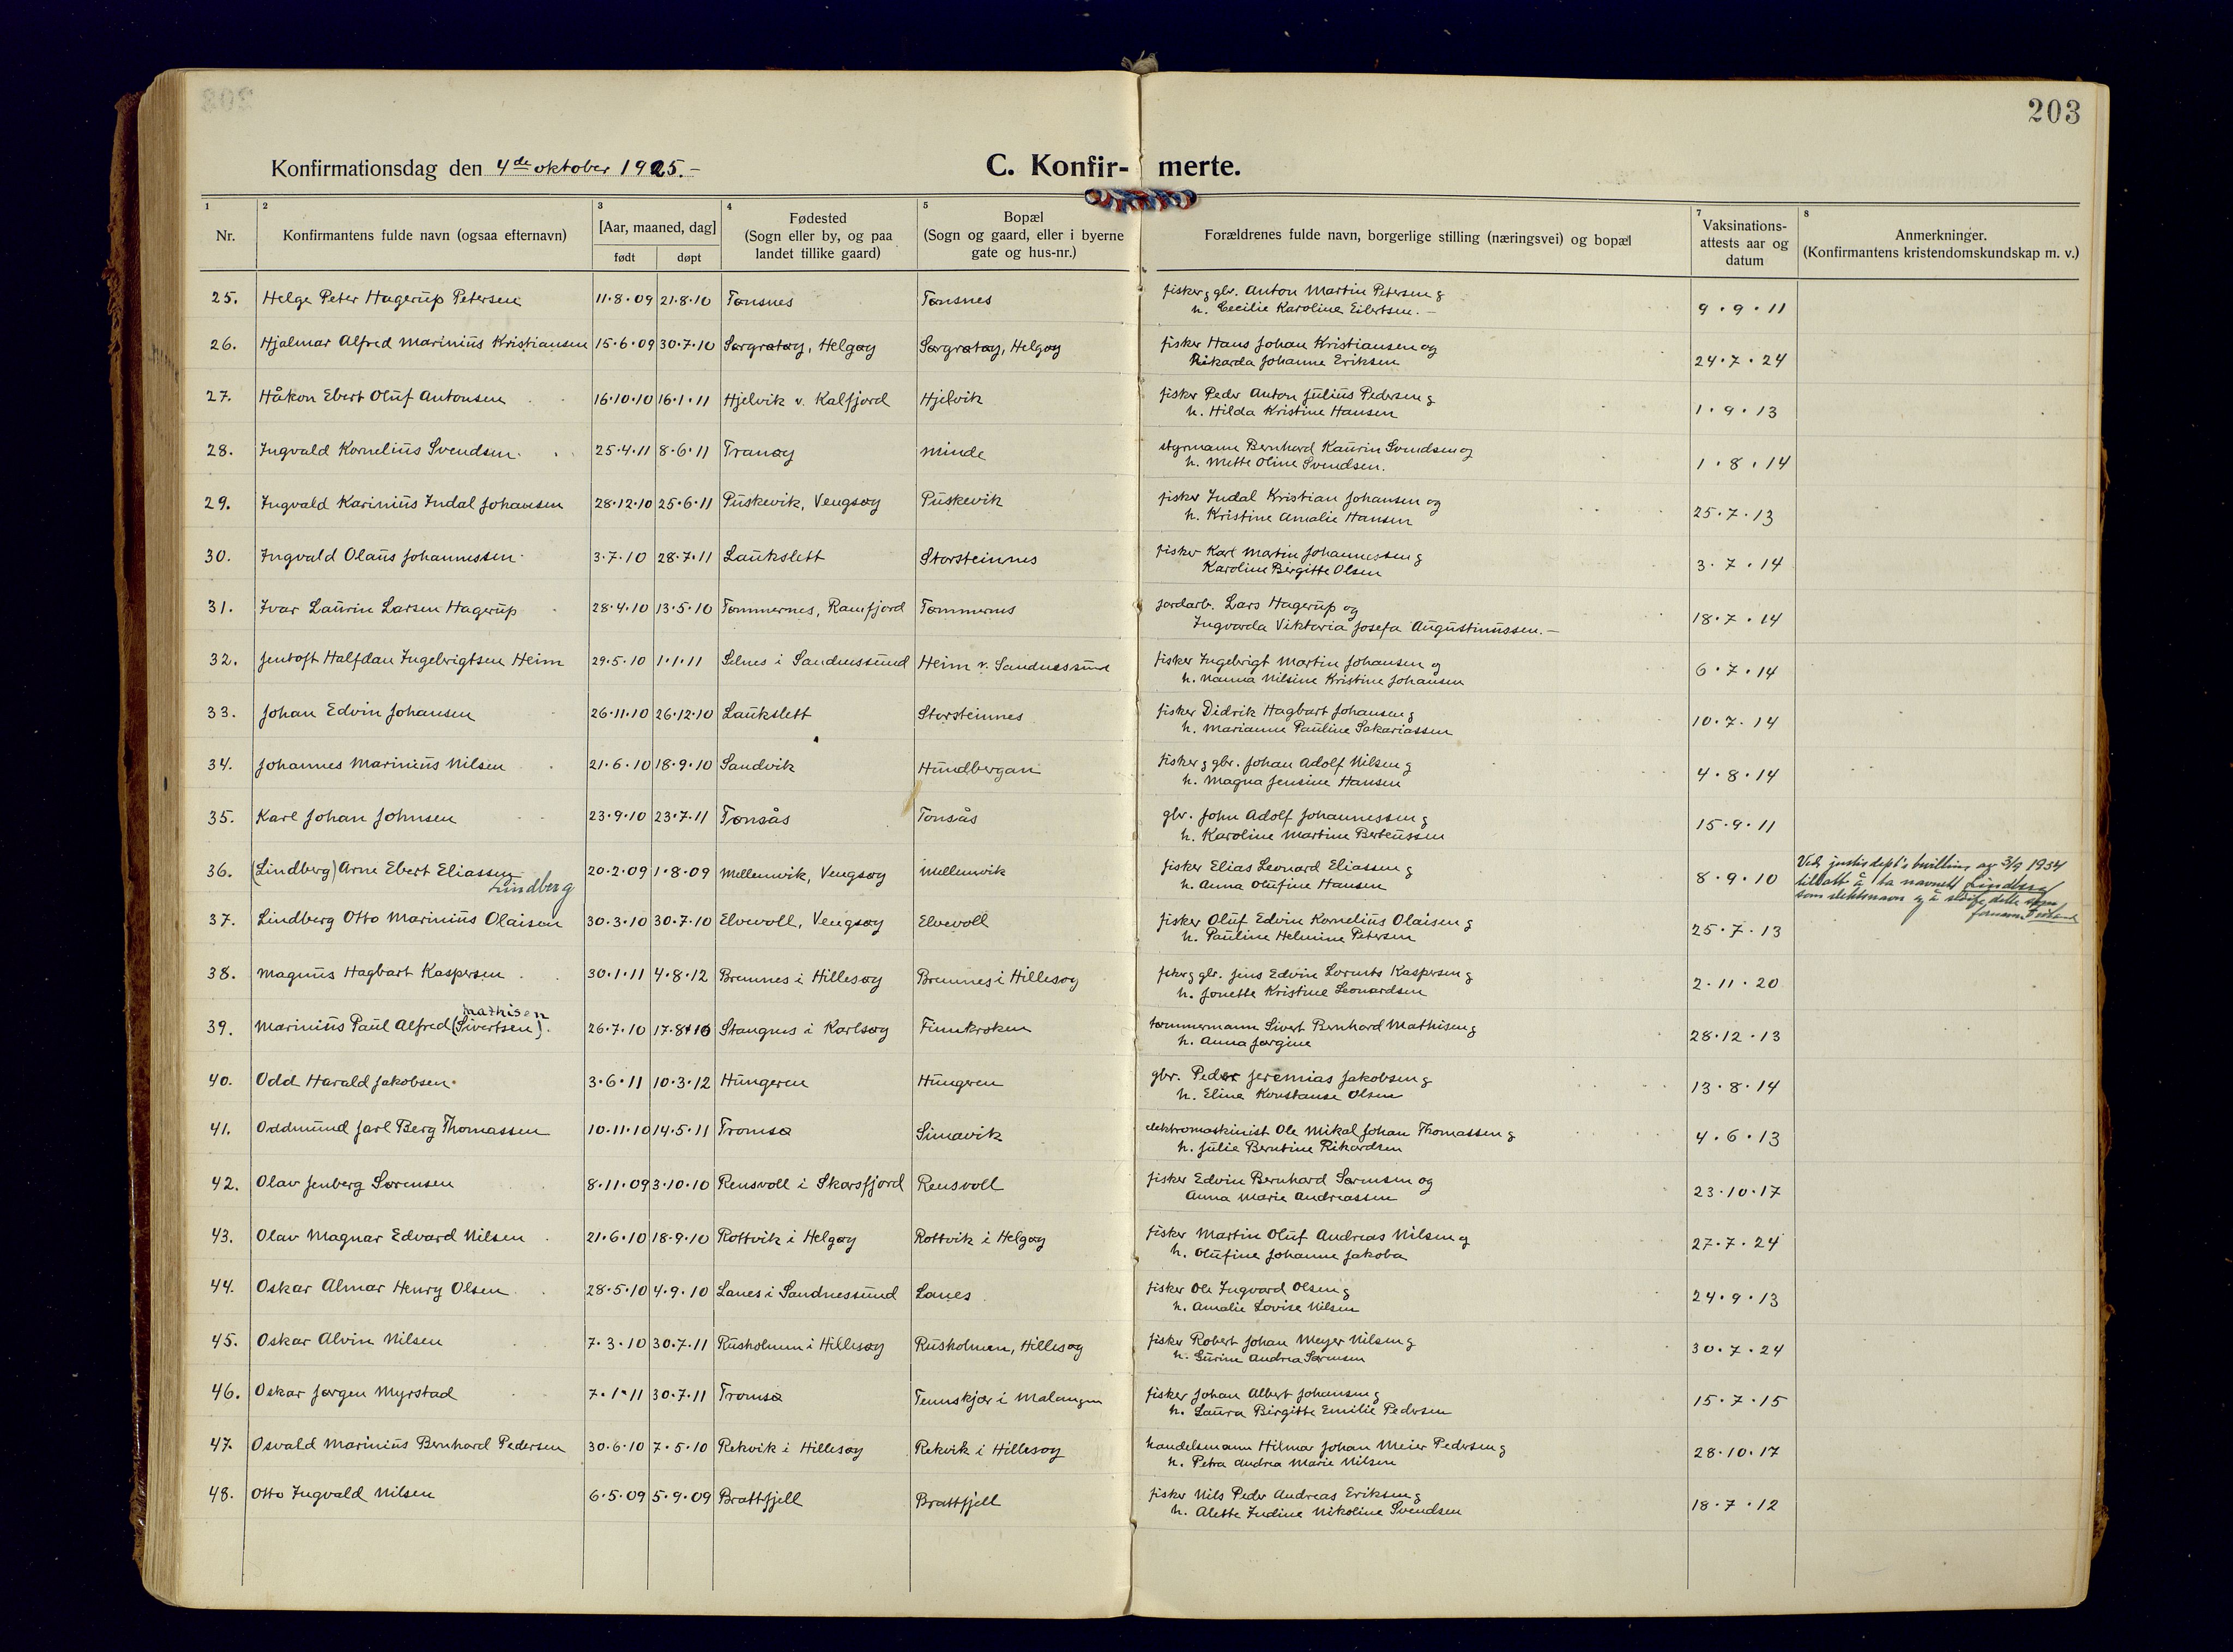 203
Konfirmationsdag den 4de oktober 1925.–
C. Konfir- merte.
1 2 3 4 5 7 8
Nr. Konfirmantens fulde navn (ogsaa efternavn) [Aar, maaned, dag] født døpt Fødested (Sogn eller by, og paa landet tillike gaard) Bopæl (Sogn og gaard, eller i byerne gate og hus-nr.) Forældrenes fulde navn, borgerlige stilling (næringsvei) og bopæl Vaksinations-attests aar og datum Anmerkninger. (Konfirmantens kristendomskundskap m. v.)
25. Helge Peter Hagerup Petersen 11.8.09 21.8.10 Tønsnes Tønsnes fisker g gbr. Anton Martin Petersen g
h. Cecilie Karoline Eilertsen.– 9.9.11
26. Hjalmar Alfred Marinius Kristiansen 15.6.09 30.7.10 Sørgrøtøy, Helgøy Sørgrøtøy, Helgøy fisker Hans Johan Kristiansen og
Rikarda Johanne Eriksen 24.7.24
27. Håkon Ebert Oluf Antonsen 16.10.10 16.1.11 Hjelvik v. Kalfjord Hjelvik fisker Peder Anton Julius Pedersen g
h. Hilda Kristine Hansen 1.9.13
28. Ingvald Kornelius Svendsen 25.4.11 8.6.11 Tranøy Minde styrmann Bernhard Kaurin Svendsen og
h. Mette Oline Svendsen. 1.8.14
29. Ingvald Karinius Indal Johansen 28.12.10 25.6.11 Puskevik, Vengsøy Puskevik fisker Indal Kristian Johansen og
h. Kristine Amalie Hansen 25.7.13
30. Ingvald Olaus Johannessen 3.7.10 28.7.11 Laukslett Storsteinnes fisker Karl Martin Johannessen g
Karoline Birgitte Olsen 3.7.14
31. Ivar Laurin Larsen Hagerup 28.4.10 13.5.10 Tømmernes, Ramfjord Tømmernes jordarb. Lars Hagerup og
Ingvarda Viktoria Josefa Augustinussen.– 18.7.14
32. Jentoft Halfdan Ingebrigtsen Heim 29.5.10 1.1.11 Selnes i Sandnessund Heim v. Sandnessund fisker Ingebrigt Martin Johansen og
h. Nanna Nilsine Kristine Johansen 6.7.14
33. Johan Edvin Johansen 26.11.10 26.12.10 Laukslett Storsteinnes fisker Didrik Hagbart Johansen g
h. Marianne Pauline Sakariassen 10.7.14
34. Johannes Marinius Nilsen 21.6.10 18.9.10 Sandvik Hundbergan fisker g gbr. Johan Adolf Nilsen g
h. Magna Jensine Hansen 4.8.14
35. Karl Johan Johnsen 23.9.10 23.7.11 Tønsås Tønsås gbr. John Adolf Johannessen g
h. Karoline Martine Berteussen 15.9.11
36. (Lindberg) Arne Ebert Eliassen 20.2.09 1.8.09 Mellemvik, Vengsøy Mellemvik fisker Elias Leonard Eliassen g
Lindberg h. Anna Olufine Hansen 8.9.10 Ved justisdept's bevilling av 3/9 1934
tillatt å ta navnet Lindberg
som slektsnavn og å sløife dette
37. Lindberg Otto Marinius Olaisen 30.3.10 30.7.10 Elvevoll, Vengsøy Elvevoll fisker Oluf Edvin Kornelius Olaisen g
h. Pauline Helmine Petersen 25.7.13
38. Magnus Hagbart Kaspersen 30.1.11 4.8.12 Bremnes i Hillesøy Bremnes i Hillesøy fisker g gbr. Jens Edvin Lorents Kaspersen g
h. Jonette Kristine Leonardsen 2.11.20
Mathisen
39. Marinius Paul Alfred (Sivertsen). 26.7.10 17.8.10 Stangnes i Karlsøy Finnkroken tømmermann Sivert Bernhard Mathisen g
h. Anna Jørgine 28.12.13
40. Odd Harald Jakobsen 3.6.11 10.3.12 Hungeren Hungeren gbr. Peder Jeremias Jakobsen g
h. Eline Konstanse Olsen 13.8.14
41. Oddmund Jarl Berg Thomassen 10.11.10 14.5.11 Tromsø Simavik elektromaskinist Ole Mikal Johan Thomassen g
h. Julie Berntine Rikardsen 4.6.13
42. Olav Jenberg Sørensen 8.11.09 3.10.10 Rensvoll i Skarsfjord Rensvoll fisker Edvin Bernhard Sørensen og
Anna Marie Andreassen 23.10.17
43. Olav Magnar Edvard Nilsen 21.6.10 18.9.10 Rottvik i Helgøy Rottvik i Helgøy fisker Martin Oluf Andreas Nilsen g
h. Olufine Johanne Jakoba 27.7.24
44. Oskar Almar Henry Olsen 28.5.10 4.9.10 Lanes i Sandnessund Lanes fisker Ole Ingvard Olsen g
h. Amalie Lovise Nilsen 24.9.13
45. Oskar Alvin Nilsen 7.3.10 30.7.11 Rusholmen i Hillesøy Rusholmen, Hillesøy fisker Robert Johan Meyer Nilsen g
h. Gurine Andrea Sørensen 30.7.24
46. Oskar Jørgen Myrstad 7.1.11 30.7.11 Tromsø Tennskjær i Malangen fisker Johan Albert Johansen g
h. Laura Birgitte Emilie Pedersen 15.7.15
47. Osvald Marinius Bernhard Pedersen 30.6.10 7.5.10 Rekvik i Hillesøy Rekvik i Hillesøy handelsmann Hilmar Johan Meier Pedersen g
h. Petra Andrea Marie Nilsen 28.10.17
48. Otto Ingvald Nilsen 6.5.09 5.9.09 Brattfjell Brattfjell fisker Nils Peder Andreas Eriksen g
h. Alette Indine Nikoline Svendsen 18.7.12